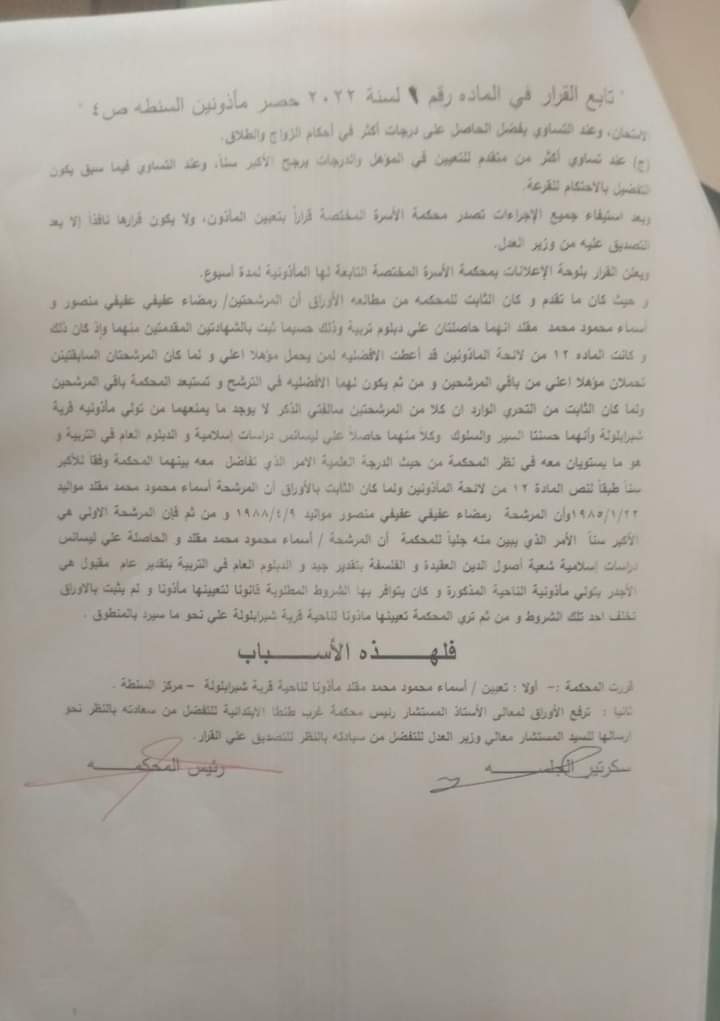 " تابع القرار في الماده رقم ٩ لسنة ٢٠٢٢ حصر مأذونين السنطه ص٤ "
الامتحان، وعند التساوي يفضل الحاصل على درجات أكثر في أحكام الزواج والطلاق.
(ج) عند تساوي أكثر من متقدم للتعيين في المؤهل والدرجات يرجح الأكبر سناً، وعند التساوي فيما سبق يكون
التفضيل بالاحتكام للقرعة.
وبعد استيفاء جميع الإجراءات تصدر محكمة الأسرة المختصة قراراً بتعيين المأذون، ولا يكون قرارها نافذاً إلا بعد
التصديق عليه من وزير العدل.
ويعلن القرار بلوحة الإعلانات بمحكمة الأسرة المختصة التابعة لها المأذونية لمدة أسبوع.
و حيث كان ما تقدم و كان الثابت للمحكمه من مطالعه الأوراق أن المرشحتين/ رمضاء عفيفي عفيفي منصور و
أسماء محمود محمد مقلد انهما حاصلتان علي دبلوم تربية وذلك حسبما ثبت بالشهادتين المقدمتين منهما وإذ كان ذلك
و كانت الماده ١٢ من لائحة المأذونين قد أعطت الافضليه لمن يحمل مؤهلا اعلي و لما كان المرشحتان السابقتين
تحملان مؤهلا اعلي من باقي المرشحين و من ثم يكون لهما الافضليه في الترشح و تستبعد المحكمة باقي المرشحين
ولما كان الثابت من التحري الوارد ان كلا من المرشحتين سالفتي الذكر لا يوجد ما يمنعهما من تولي مأذونيه قرية
شبرابلولة وأنهما حسنتا السير والسلوك وكلاً منهما حاصلاً علي ليسانس دراسات إسلامية و الدبلوم العام في التربية و
هو ما يستويان معه في نظر المحكمة من حيث الدرجة العلمية الامر الذي تفاضل معه بينهما المحكمة وفقا للأكبر
سناً طبقاً لنص المادة ١٢ من لائحة المأذونين ولما كان الثابت بالأوراق أن المرشحة أسماء محمود محمد مقلد مواليد
١٩٨٥/١/٢٢وأن المرشحة رمضاء عفيفي عفيفي منصور مواليد ١٩٨٨/٤/٩ و من ثم فإن المرشحة الاولي هي
الأكبر سناً الأمر الذي يبين منه جلياً للمحكمة أن المرشحة / أسماء محمود محمد مقلد و الحاصلة علي ليسانس
دراسات إسلامية شعبة أصول الدين العقيدة و الفلسفة بتقدير جيد و الدبلوم العام في التربية بتقدير عام مقبول هي
الأجدر بتولي مأذونية الناحية المذكورة و كان يتوافر بها الشروط المطلوبة قانونا لتعيينها مأذونا و لم يثبت بالاوراق
تخلف احد تلك الشروط و من ثم تري المحكمة تعيينها ماذونا لناحية قرية شبرابلولة علي نحو ما سيرد بالمنطوق .
فلهـــذه الأســـباب
قررت المحكمة :- أولا : تعيين / أسماء محمود محمد مقلد مأذونا لناحية قرية شبرابلولة – مركز السنطة .
ثانيا : ترفع الأوراق لمعالى الأستاذ المستشار رئيس محكمة غرب طنطا الابتدائية للتفضل من سعادته بالنظر نحو
ارسالها للسيد المستشار معالي وزير العدل للتفضل من سيادته بالنظر للتصديق علي القرار.
سكرتير الجلســـه
رئيس المحكمـــه